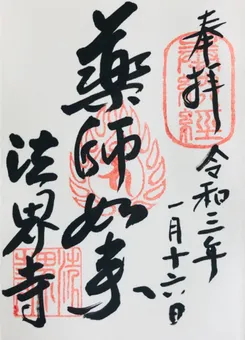 奉拝
令和三年
一月十六日
薬師如来
法界寺